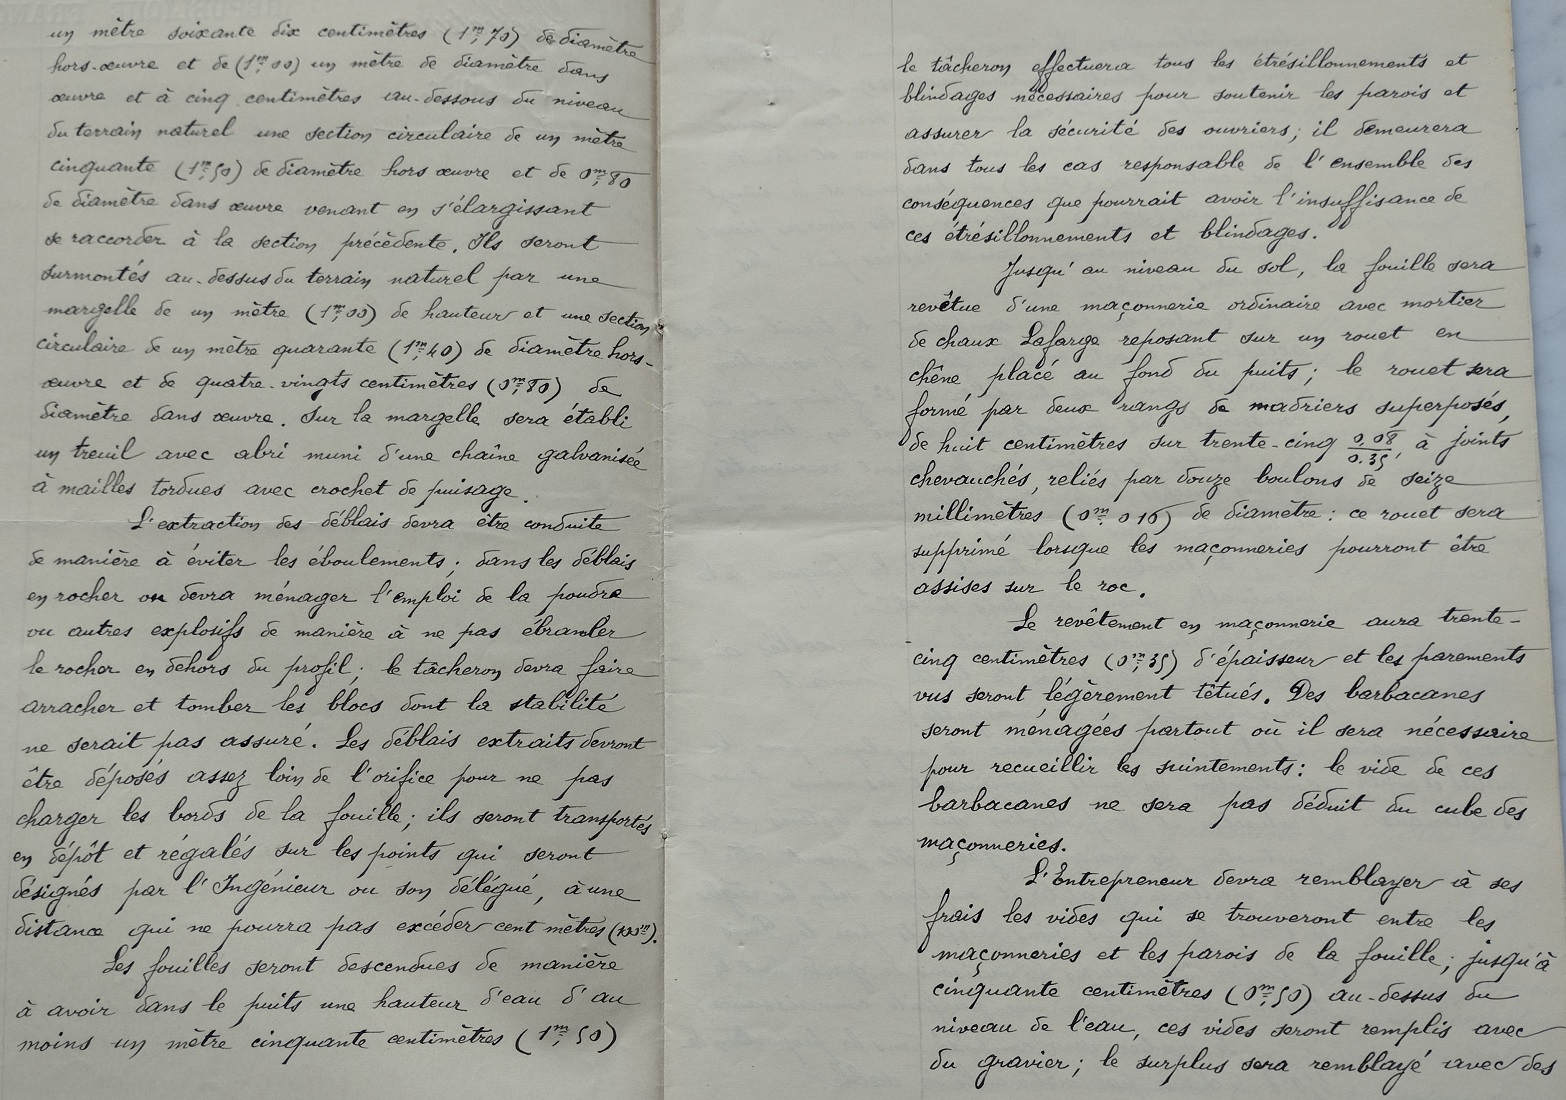 un mètre soixante dix centimètres (1m,70) de diamètre
hors-œuvre et de (1m,00) un mètre de diamètre dans
œuvre et à cinq centimètres au-dessous du niveau
du terrain naturel une section circulaire de un mètre
cinquante (1m,50) de diamètre hors œuvre et de 0m,80
de diamètre dans œuvre venant en s'élargissant
se raccorder à la section précédente. Ils seront
surmontés au-dessus du terrain naturel par une
margelle de un mètre (1m,00) de hauteur et une section
circulaire de un mètre quarante (1m,40) de diamètre hors-
œuvre et de quatre-vingts centimètres (0m,80) de
diamètre dans œuvre. Sur la margelle sera établi
un treuil avec abri muni d'une chaîne galvanisée
à mailles tordues avec crochet de puisage.
L'extraction des déblais devra être conduite
de manière à éviter les éboulements; dans les déblais
en rocher on devra ménager l'emploi de la poudre
ou autres explosifs de manière à ne pas ébranler
le rocher en dehors du profil; le tâcheron devra faire
arracher et tomber les blocs dont la stabilité
ne serait pas assuré. Les déblais extraits devront
être déposés assez loin de l'orifice pour ne pas
charger les bords de la fouille; ils seront transportés
en dépôt et régalés sur les points qui seront
désignés par l'Ingénieur ou son délégué, à une
distance qui ne pourra pas excéder cent mètres (100m).
Les fouilles seront descendues de manière
à avoir dans le puits une hauteur d'eau d'au
moins un mètre cinquante centimètres (1m,50)
le tâcheron effectuera tous les étrésillonnements et
blindages nécessaires pour soutenir les parois et
assurer la sécurité des ouvriers; il demeurera
dans tous les cas responsable de l'ensemble des
conséquences que pourrait avoir l'insuffisance de
ces étrésillonnements et blindages.
Jusqu'au niveau du sol, la fouille sera
revêtue d'une maçonnerie ordinaire avec mortier
de chaux Lafarge reposant sur un rouet en
chêne placé au fond du puits; le rouet sera
formé par deux rangs de madriers superposés,
de huit centimètres sur trente-cinq 0,08/0,35, à joints
chevauchés, reliés par douze boulons de seize
millimètres (0m,016) de diamètre: ce rouet sera
supprimé lorsque les maçonneries pourront être
assises sur le roc.
Le revêtement en maçonnerie aura trente-
cinq centimètres (0m,35) d'épaisseur et les parements
vus seront légèrement têtués. Des barbacanes
seront ménagées partout où il sera nécessaire
pour recueillir les suintements: le vide de ces
barbacanes ne sera pas déduit du cube des
maçonneries.
L'Entrepreneur devra remblayer à ses
frais les vides qui se trouveront entre les
maçonneries et les parois de la fouille; jusqu'à
cinquante centimètres (0m,50) au-dessus du
niveau de l'eau, ces vides seront remplis avec
du gravier; le surplus sera remblayé avec des